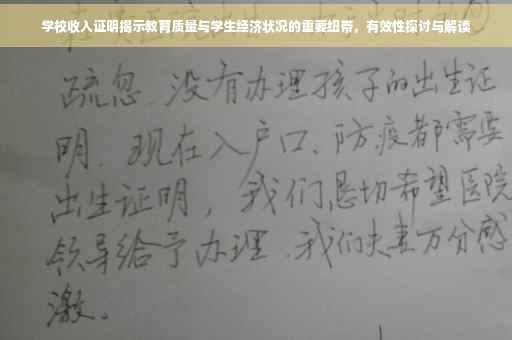 学校收入证明揭示教育质量与学生经济状况的重要纽带，有效性探讨与解读
疏忽.没有办理孩子的出生证
明.现在入户口、防疫都需要
出生证明，我们恳切希望医院
领导给予办理.我们夫妻万分感
激。